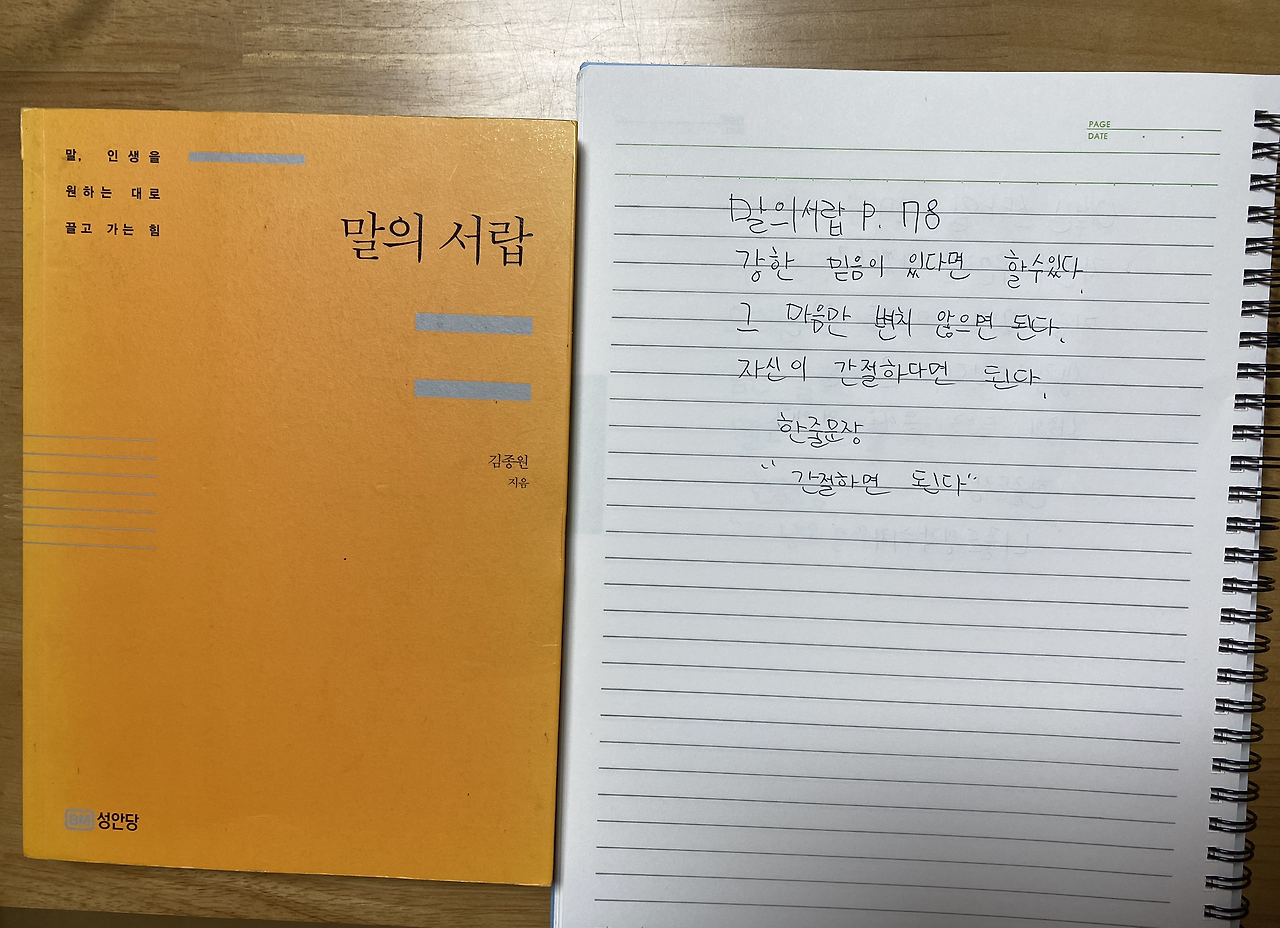 말, 인생을
원하는 대로
끌고 가는 힘
말의 서랍
김종원
지음
BM 성안당
PAGE
DATE
말의서랍 P. 78
강한 믿음이 있다면 할수있다.
그 마음만 변치 않으면 된다.
자신이 간절하다면 된다.
한줄문장
"간절하면 된다"